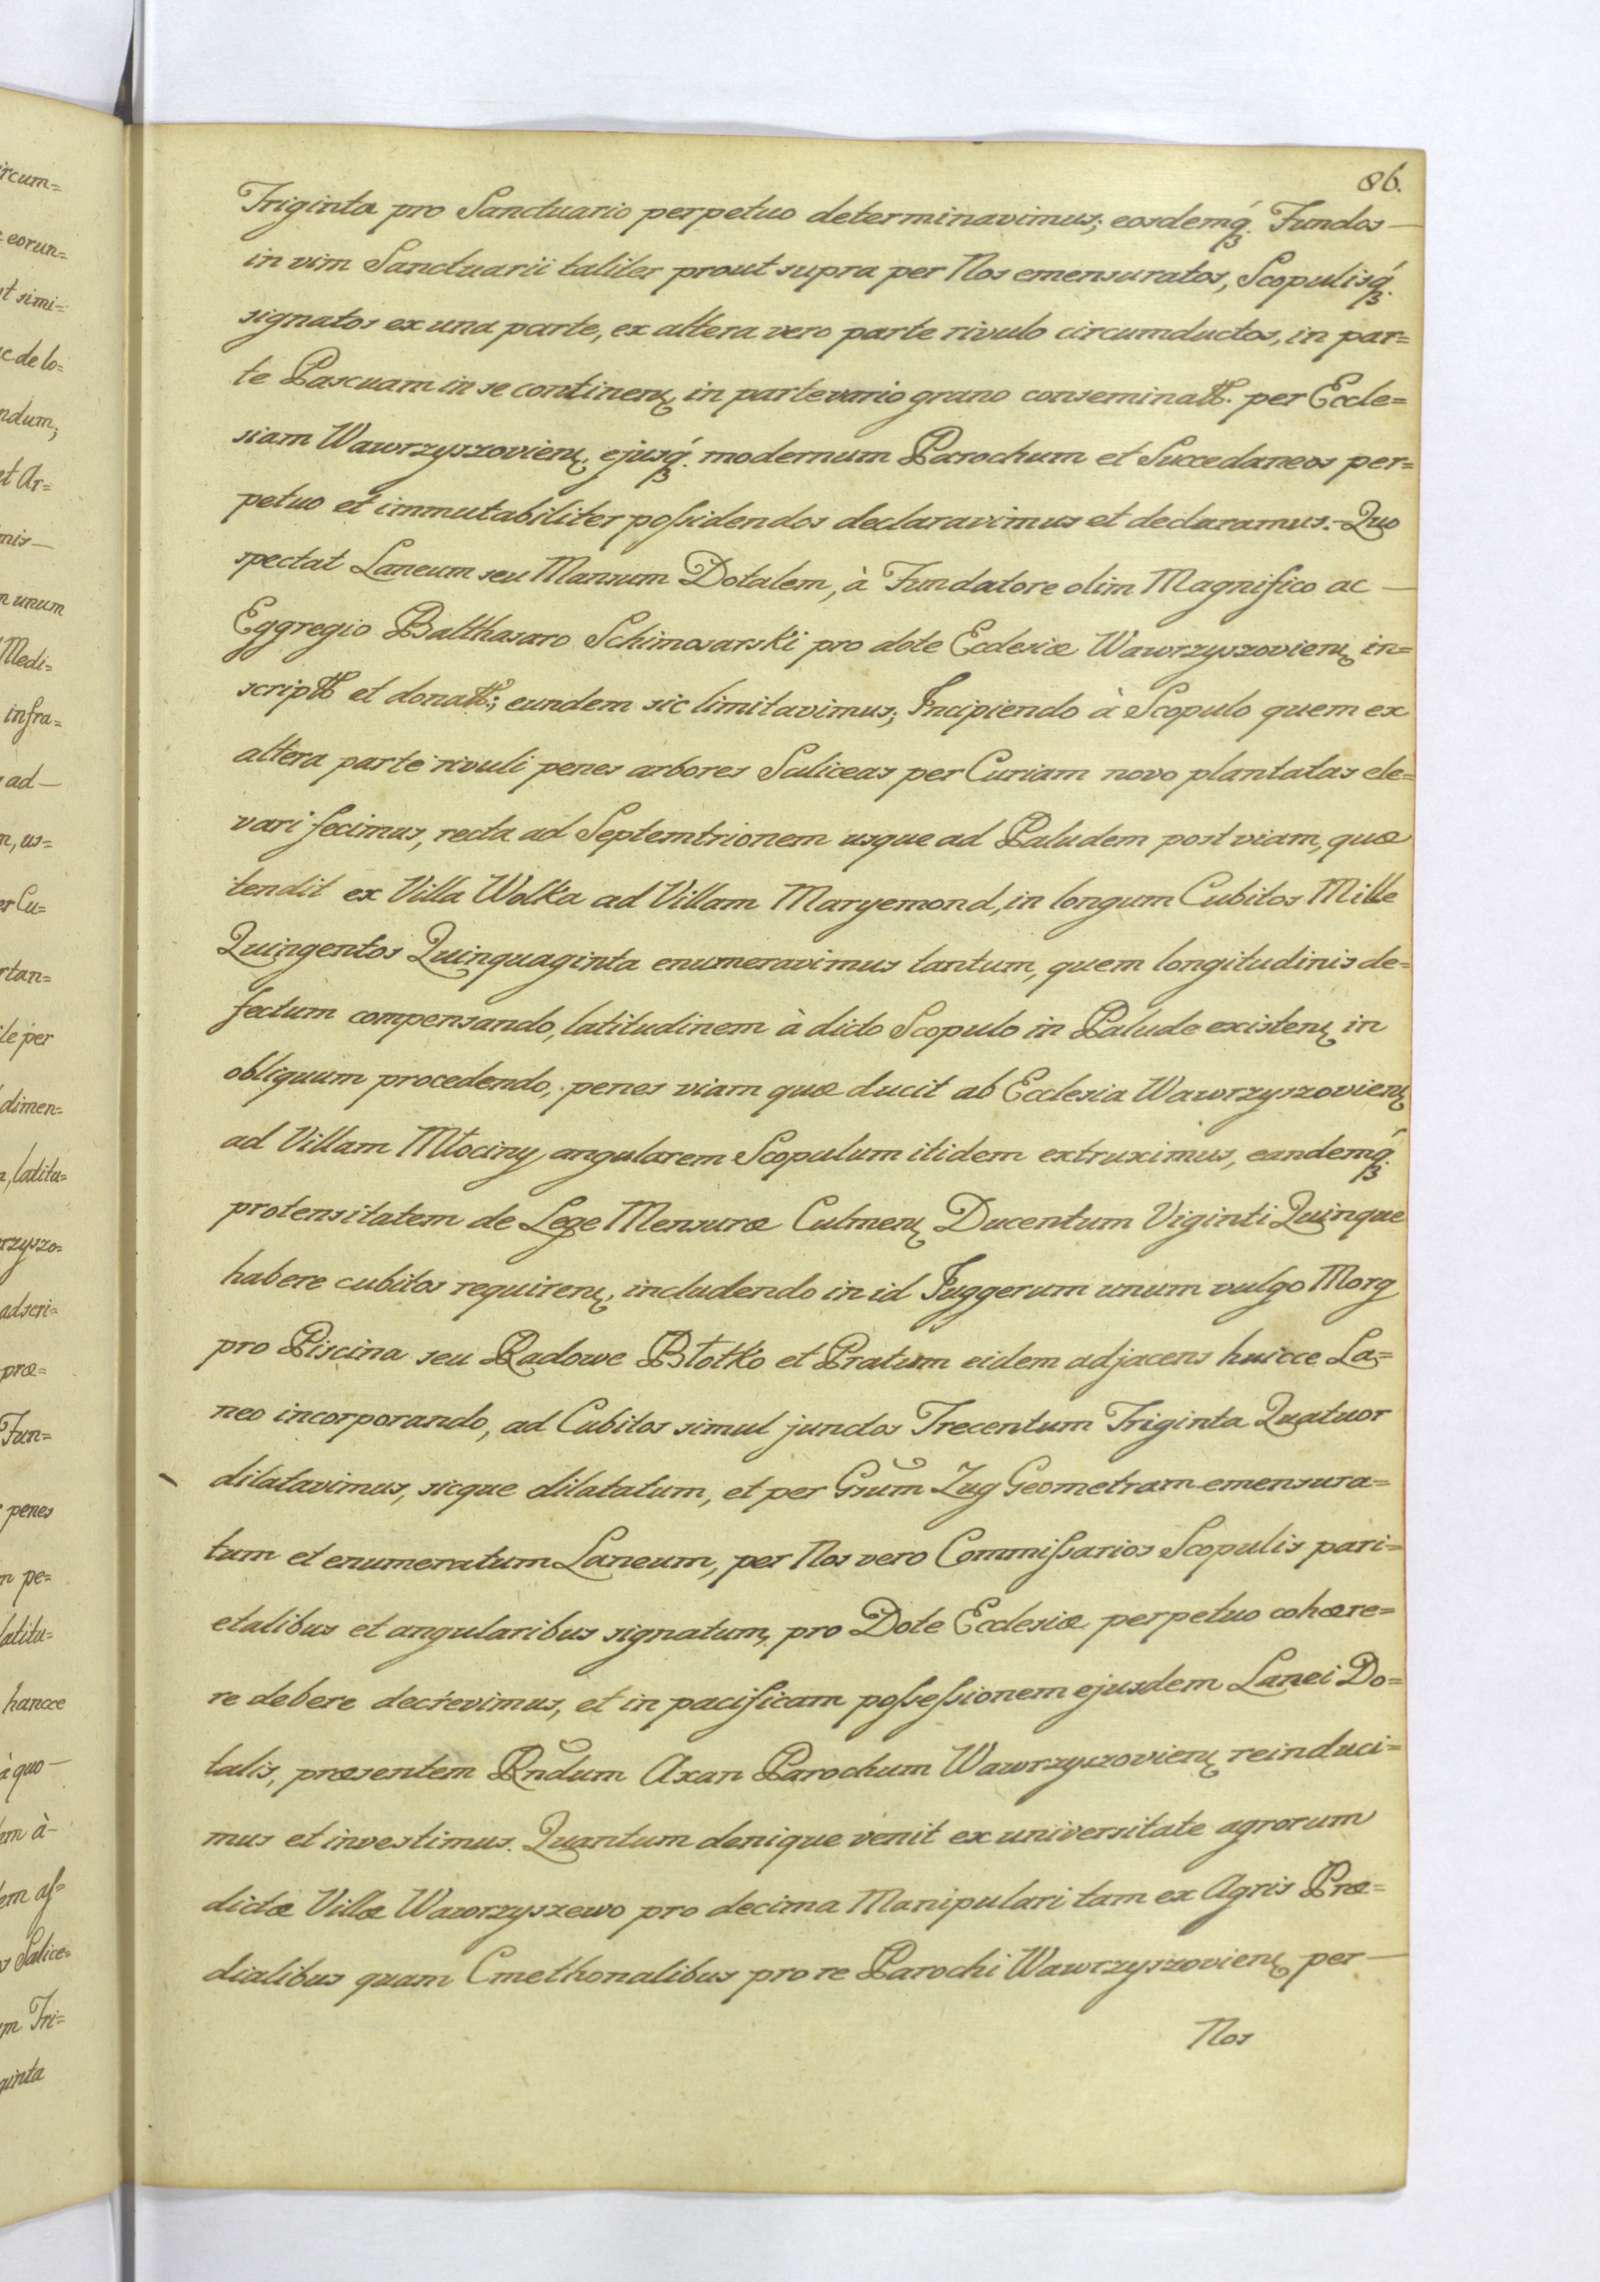 86.
Triginta pro Sanctuario perpetuo determinavimus; eosdemq́ꝫ. Fundos —
in vim Sanctuarii taliter prout supra per Nos emensuratos, Scopulisq́ꝫ.
signatos ex una parte, ex altera vero parte rivulo circumductos, in par=
te Pascuam in se continenꝭ, in parte vario grano conseminatt. per Eccle=
siam Wawrzyszovienꝭ, ejusq́ꝫ. modernum Parochum et Succedaneos per=
petuo et immutabiliter poſsidendos declaravimus et declaramus. - Quo
spectat Laneum seu Mansum Dotalem, à Fundatore olim Magnifico ac —
Eggregio Balthasaro Schimosarski pro dote Ecclesiæ Wawrzyszovienꝭ in=
scriptt et donatt; eundem sic limitavimus; Incipiendo à Scopulo quem ex
altera parte rivuli penes arbores Saliceas per Curiam novo plantatas ele=
vari fecimus, recta ad Septemtrionem usque ad Paludem post viam, quæ
tendit ex Villa Wolka ad Villam Maryemond, in longum Cubitos Mille
Quingentos Quinquaginta enumeravimus tantum, quem longitudinis de=
fectum compensando, latitudinem à dicto Scopulo in Palude existenꝭ in
obliquum procedendo, penes viam quæ ducit ab Ecclesia Wawrzyszovienꝭ
ad Villam Młociny, angularem Scopulum itidem extruximus, eandemq́ꝫ.
protensitatem de Lege Mensuræ Culmenꝭ Ducentum Viginti Quinque
habere cubitos requirenꝭ, includendo in id Juggerum unum vulgo Morg
pro Piscina seu Radowe Błotko et Pratum eidem adjacens huicce La=
neo incorporando, ad Cubitos simul junctos Trecentum Triginta Quatuor
dilatavimus, sicque dilatatum, et per Gsum Zug Geometram emensura=
tum et enumeratum Laneum, per Nos vero Commiſsarios Scopulis pari=
etalibus et angularibus signatum, pro Dote Ecclesiæ perpetuo cohære=
re debere decrevimus, et in pacificam poſseſsionem ejusdem Lanei Do=
talis, præsentem Rndum Axan Parochum Wawrzyszovienꝭ reinduci=
mus et investimus. Quantum denique venit ex universitate agrorum
dictæ Villæ Wawrzyszewo pro decima Manipulari tam ex Agris Præ=
dialibus quam Cmethonalibus pro re Parochi Wawrzyszovienꝭ per —
Nos
ircum=
eorun=
t simi=
c de lo=
ndum;
t Ar=
nis —
n unum
Medi=
infra=
ad —
n, us=
er Cu=
rtan=
le per
dimen=
, latitu=
rzyszo=
adscri=
præ=
Fun=
penes
n pe=
latitu=
hancce
à quo —
m à -
em aſ=
s Salice=
m Tri=
ginta